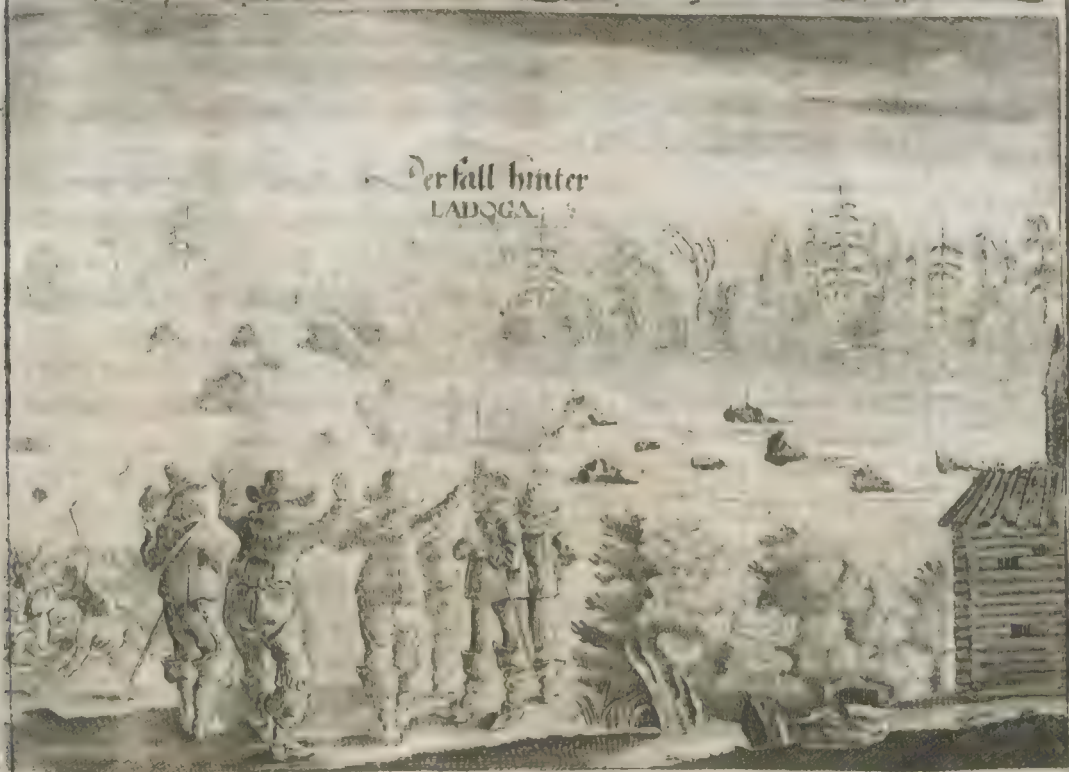 Der fall hinter
LADOGA.